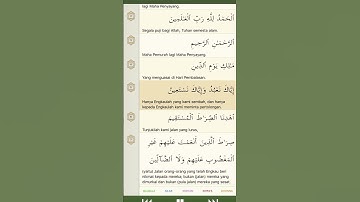 lagi Maha Penyayang.
ٱلْحَمْدُ لِلَّهِ رَبِّ ٱلْعَٰلَمِينَ
Segala puji bagi Allah, Tuhan semesta alam.
ٱلرَّحْمَٰنِ ٱلرَّحِيمِ
Maha Pemurah lagi Maha Penyayang.
مَٰلِكِ يَوْمِ ٱلدِّينِ
Yang menguasai di Hari Pembalasan.
إِيَّاكَ نَعْبُدُ وَإِيَّاكَ نَسْتَعِينُ
Hanya Engkaulah yang kami sembah, dan hanya
kepada Engkaulah kami meminta pertolongan.
ٱهْدِنَا ٱلصِّرَٰطَ ٱلْمُسْتَقِيمَ
Tunjukilah kami jalan yang lurus,
صِرَٰطَ ٱلَّذِينَ أَنْعَمْتَ عَلَيْهِمْ غَيْرِ
ٱلْمَغْضُوبِ عَلَيْهِمْ وَلَا ٱلضَّآلِّينَ
(yaitu) Jalan orang-orang yang telah Engkau beri
nikmat kepada mereka; bukan (jalan) mereka yang
dimurkai dan bukan (pula jalan) mereka yang sesat.